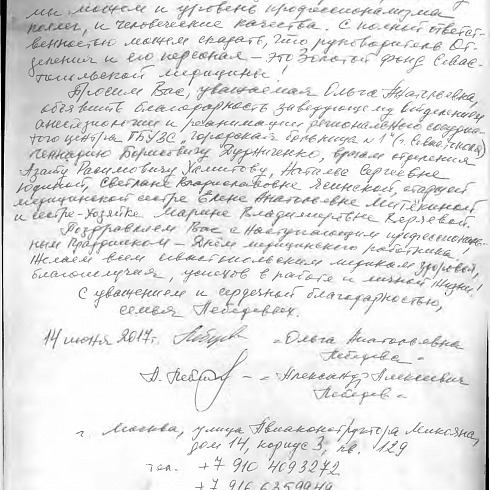 мы можем и уровень профессионализма
коллег, и человеческие качества. С полной ответст-
венностью можем сказать, что руководитель От-
деления и его персонал - это Золотой фонд Севас-
топольской медицины!
Просим Вас, уважаемая Ольга Анатольевна,
объявить благодарность заведующему отделением
анестезиологии и реанимации регионального сосудис-
того центра ГБУЗС "Городская больница №1" (г. Севастополь)
Геннадию Борисовичу Дудниченко, врачам отделения
Азату Рашидовичу Хамитову, Наталье Сергеевне
Юдиной, Светлане Владиславовне Ясинской, старшей
медицинской сестре Елене Анатольевне Митехиной
и сестре-хозяйке Марине Владимировне Верзевой.
Поздравляем Вас с наступающим профессиональ-
ным праздником - Днем медицинского работника.
Желаем всем севастопольским медикам здоровья,
благополучия, успехов в работе и личной жизни!
С уважением и сердечной благодарностью,
семья Лебедевых.
14 июня 2017г. - Ольга Анатольевна
Лебедева -
- Александр Алексеевич
Лебедев -
г. Москва, улица Авиаконструктора Микояна,
дом 14, корпус 3, кв. 129
тел. +7 910 4093272
+7 916 6359949